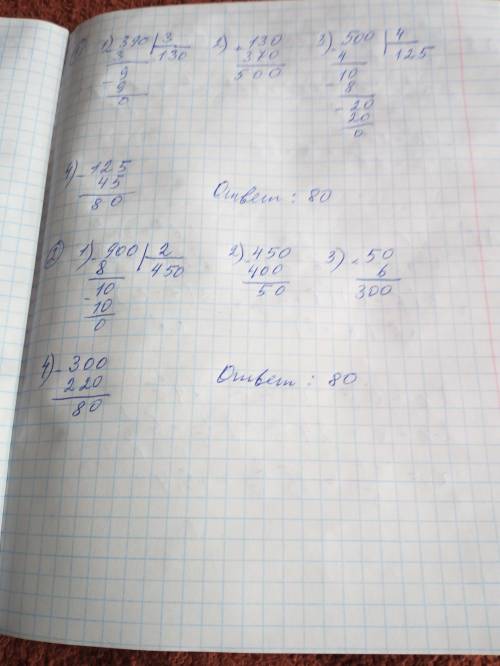 1) 1) - 390 | 3 2) + 130 3) - 500 | 4
3 130 370 4 125
- 9 500 - 10
9 8
0 - 20
20
0
4) - 125 Ответ : 80
45
80
2) 1) - 900 | 2 2) - 450 3) × 50
8 450 400 6
- 10 50 300
10
0
4) - 300 Ответ : 80
220
80